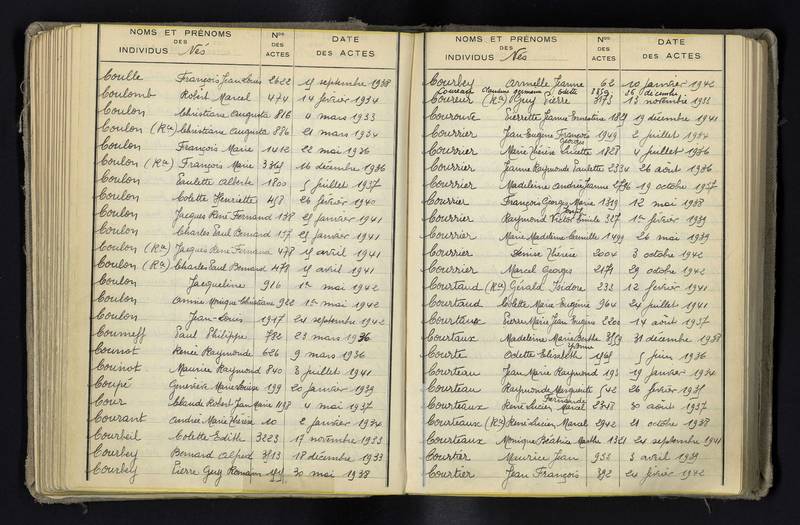 NOMS ET PRÉNOMS DES INDIVIDUS Nés
Nos DES ACTES
DATE DES ACTES
Coulle François Jean Louis 2622 septembre 1938
Coulomb Robert Marcel 474 14 février 1934
Coulon Christiane Augusta 816 4 mars 1933
Coulon (Rce) Christiane Augusta 886 21 mars 1934
Coulon François Marie 1412 22 mai 1936
Coulon (Rce) François Marie 16 décembre 1936
Coulon Paulette Alberte 1800 5 juillet 1937
Coulon Colette Henriette 458 26 février 1940
Coulon Jacques René Fernand 138 janvier 1941
Coulon Charles Paul Bernard 137 janvier 1941
Coulon (Rce) Jacques René Fernand 478 avril 1941
Coulon (Rce) Charles Paul Bernard 479 avril 1941
Coulon Jacqueline 916 1er mai 1942
Coulon Annie Monique Christiane 922 1er mai 1942
Coulon Jean-Louis 1917 24 septembre 1942
Coumeff Paul Philippe 782 23 mars 1936
Counot Renée Raymonde 626 9 mars 1936
Counot Maurice Raymond 840 8 juillet 1941
Coupé Geneviève Marie Louise 199 20 janvier 1939
Cour Claude Robert Jean Marie 1198 4 mai 1937
Courant Andrée Marie Thérèse 10 2 janvier 1934
Courbeil Colette Edith 3223 17 novembre 1933
Courbey Bernard Alfred 3513 18 décembre 1933
Courbey Pierre Guy Romain 30 mai 1938
NOMS ET PRÉNOMS DES INDIVIDUS Nés
Nos DES ACTES
DATE DES ACTES
Courbey Armelle Jeanne 62 10 janvier 1942
Claudine Germaine Odette décembre
Coureur (Rce) Guy Pierre 3173 13 novembre 1933
Courouve Pierrette Jeanne Ernestine 1829 19 décembre 1941
Courrier Jean Eugène François 1949 2 juillet 1934
Georges
Courrier Marie Thérèse Lucette 1828 4 juillet 1936
Courrier Jeanne Raymonde Paulette 2334 26 août 1936
Courrier Madeleine Andrée Jeanne 2716 19 octobre 1937
Courrier François Georges Marie 1319 12 mai 1938
Courrier Raymond Victor Emile 327 1er février 1939
Courrier Marie Madeleine Camille 1499 26 mai 1939
Courrier Denise Thérèse 2004 3 octobre 1942
Courrier Marcel Georges 2171 29 octobre 1942
Courtaud (Rce) Gérald Isidore 233 12 février 1941
Courtaud Colette Marie Eugénie 964 24 juillet 1941
Courtaux Pierre Marie Jean Eugène 2200 14 août 1937
Courtaux Madeleine Marie Berthe 31 décembre 1938
Yvonne
Courte Odette Elisabeth 5 juin 1936
Courteau Jean Marie Raymond 193 19 janvier 1934
Courteau Raymonde Marguerite 542 26 février 1931
Fernande
Courteaux René Lucien Marcel 2348 30 août 1937
Courteaux (Rce) René Lucien Marcel 2942 21 octobre 1938
Courteaux Monique Béatrice Marthe 1321 24 septembre 1941
Courtier Maurice Jean 952 3 avril 1939
Courtier Jean François 392 24 février 1942